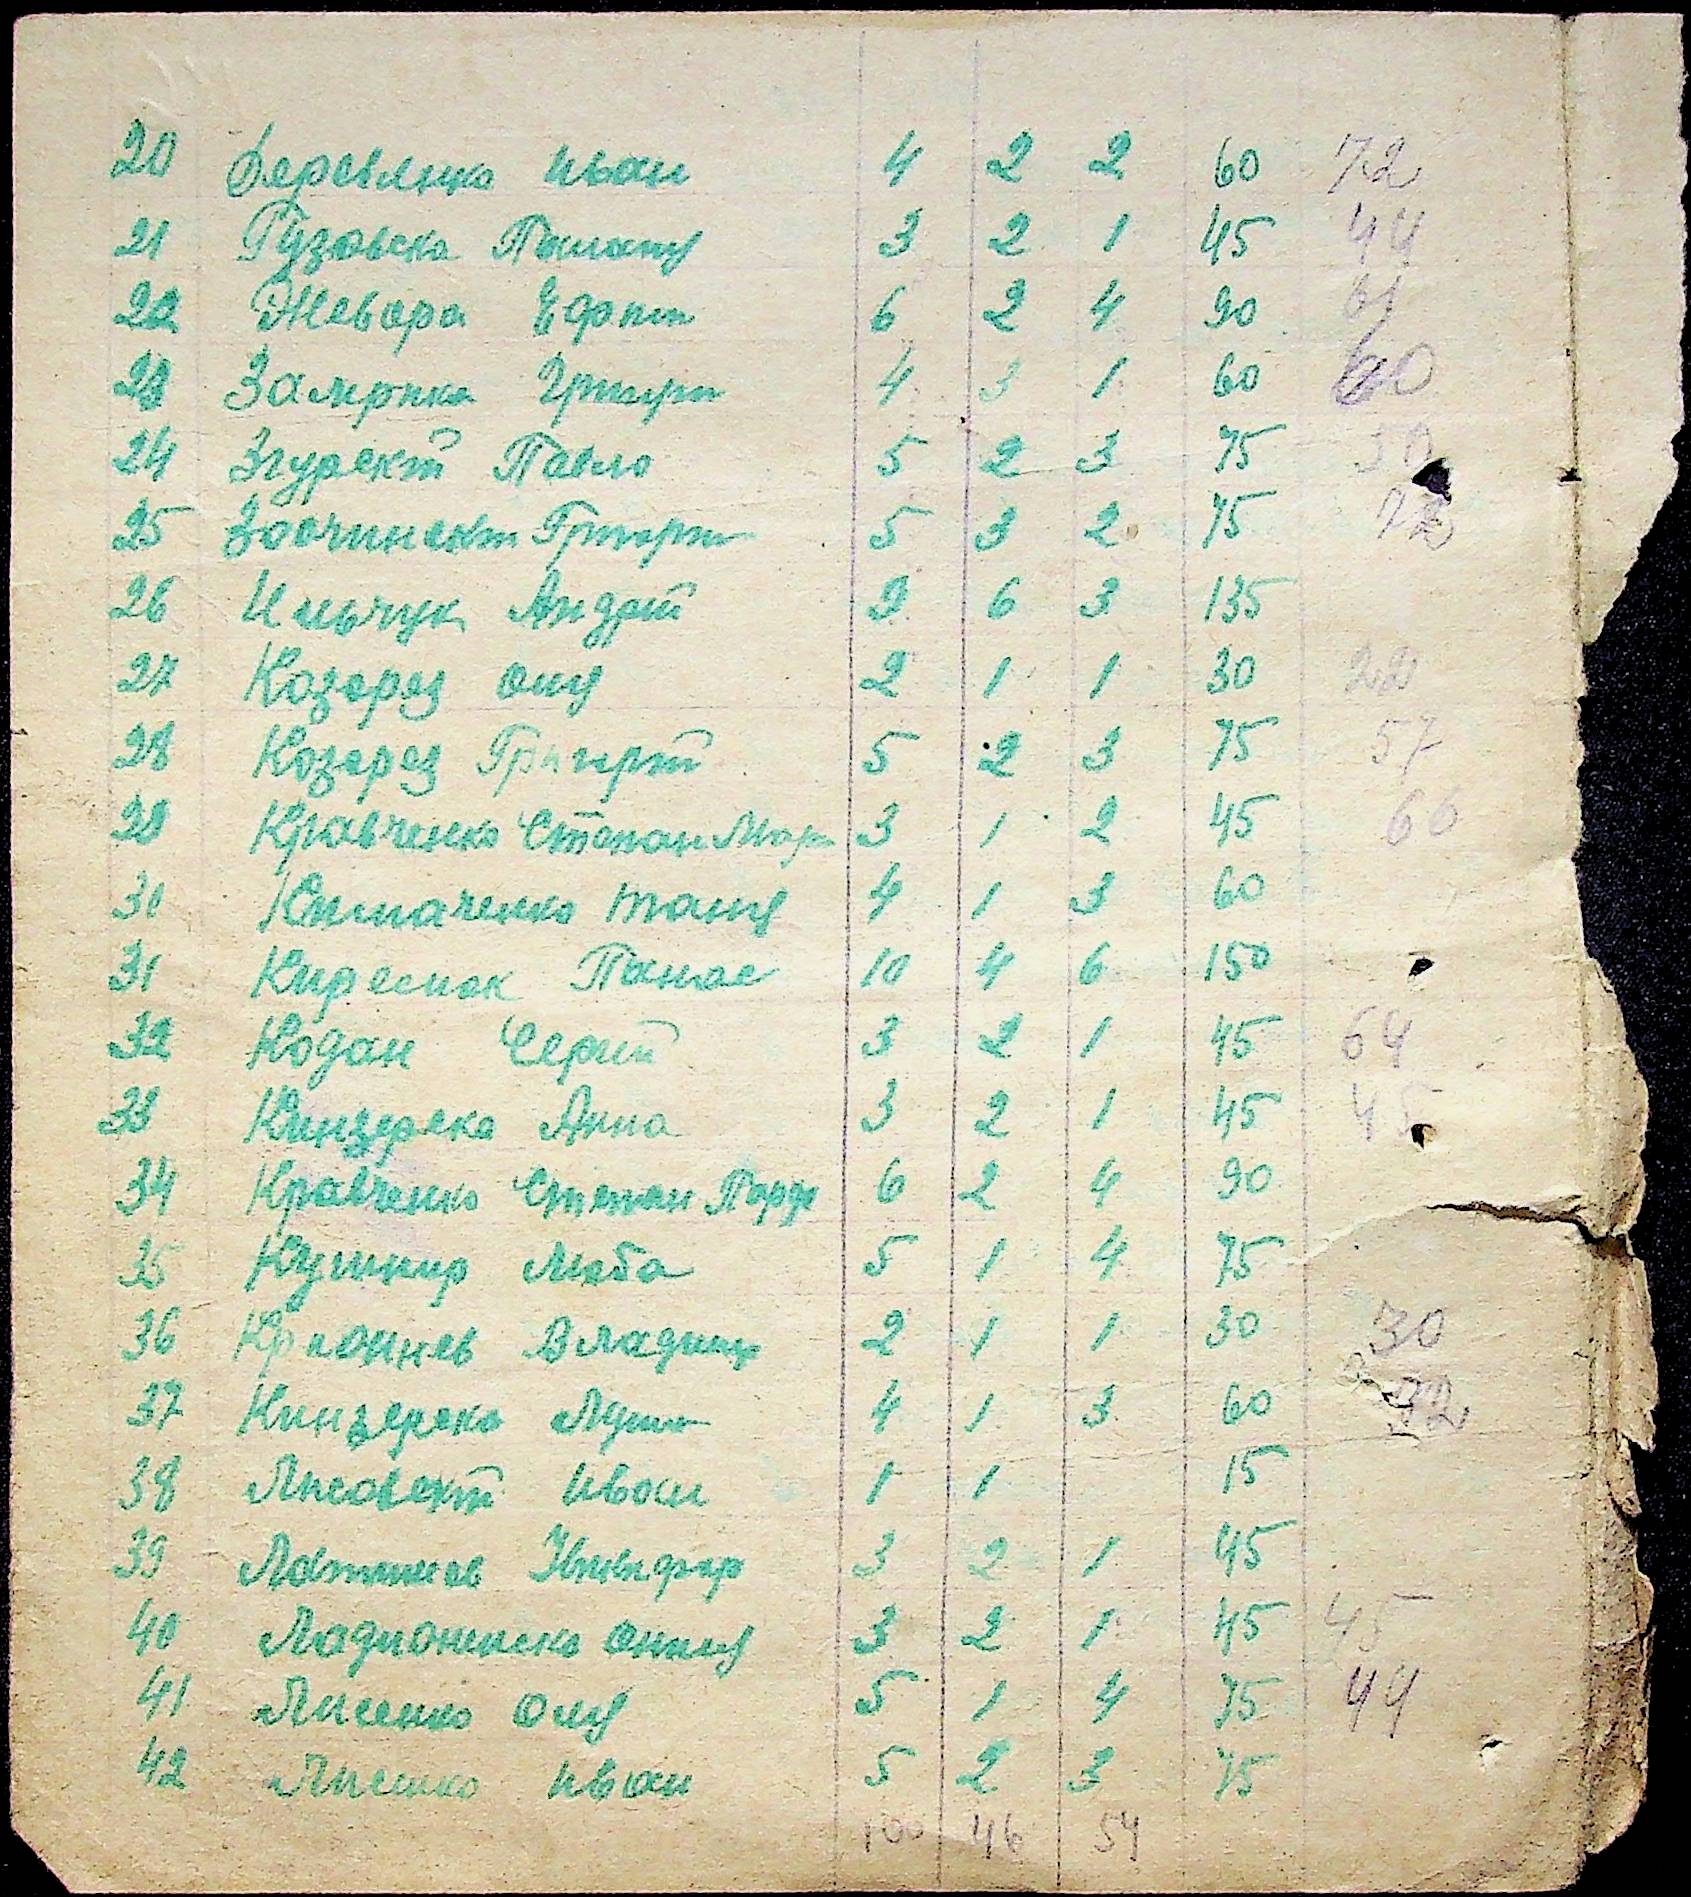 20 Деревянко Иван 4 2 2 60 72
21 Гузовска 3 2 1 45 44
22 Жевора Ефпт 6 2 4 90 61
23 Замрика Григри 4 3 1 60 60
24 Згурскт Павло 5 2 3 75 50
25 Григри 5 3 2 75 72
26 Ильчук Андрт 9 6 3 135
27 Козорез Оля 2 1 1 30 22
28 Козорез Григрт 5 2 3 75 57
29 Кравченко Степан Мар 3 1 2 45 66
30 Таня 4 1 3 60
31 Панас 10 4 6 150
32 Кодан Сергй 3 2 1 45 64
33 Кинзерска Анна 3 2 1 45 45
34 Кравченко Степан Парф 6 2 4 90
35 Кушнир Люба 5 1 4 75
36 Владимр 2 1 1 30 30
37 Кинзерска 4 1 3 60 72
38 Лисовскт Иван 1 1 15
39 Никифор 3 2 1 45
40 3 2 1 45 45
41 Лисенко Оля 5 1 4 75 44
42 Лисенко Иван 5 2 3 75
100 46 54